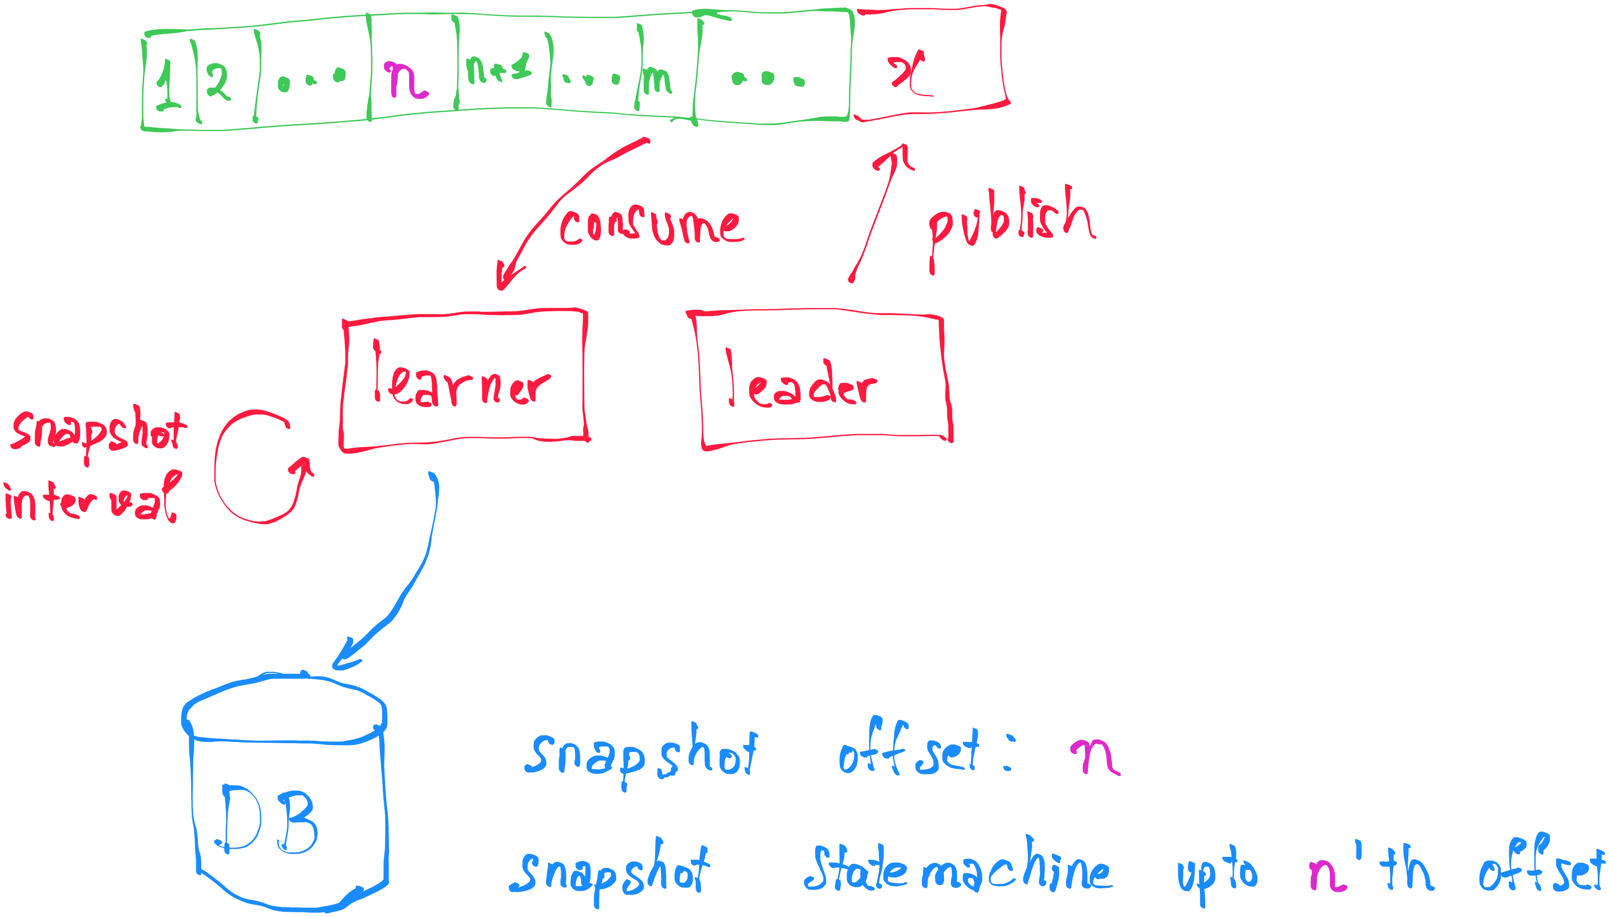 1 2 ... n n+1 ... m ... x
consume
publish
learner
leader
snapshot
interval
DB
snapshot offset: n
snapshot statemachine upto n'th offset